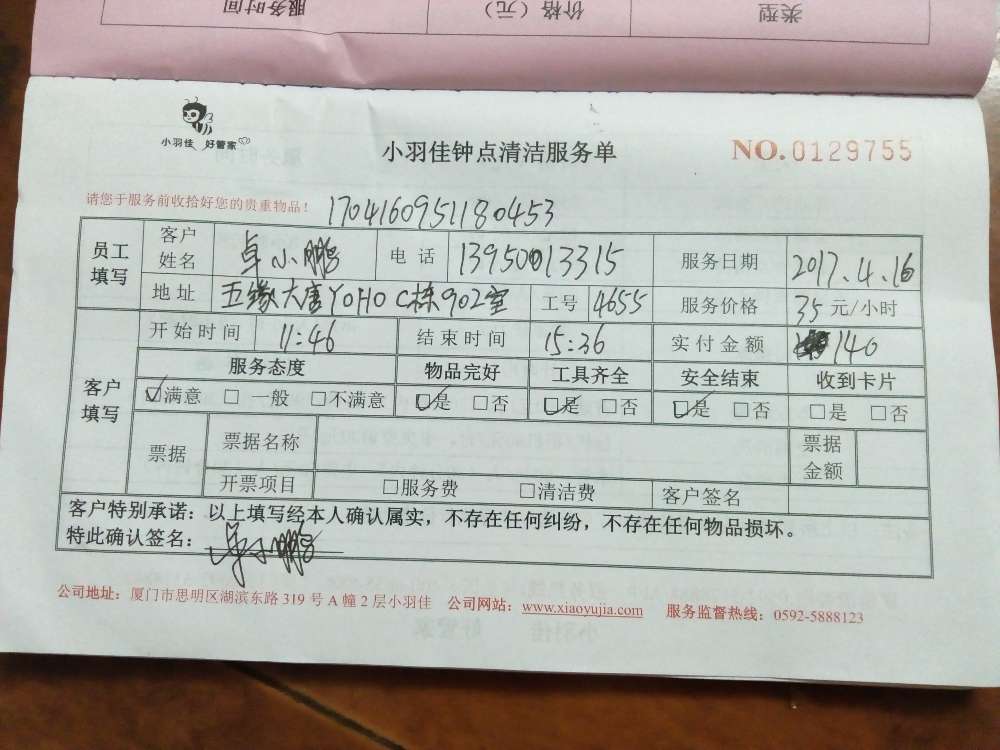 类型 价格（元） 服务时间
小羽佳 好管家
小羽佳钟点清洁服务单 NO.0129755
请您于服务前收拾好您的贵重物品！ 1704160951180453
员工填写 客户姓名 卓小鹏 电话 13950013315 服务日期 2017.4.16
地址 五缘大唐YOHO C栋902室 工号 4655 服务价格 35 元/小时
客户填写 开始时间 11:46 结束时间 15:36 实付金额 140
服务态度 物品完好 工具齐全 安全结束 收到卡片
☑满意 □一般 □不满意 ☑是 □否 ☑是 □否 ☑是 □否 □是 □否
票据 票据名称 票据金额
开票项目 □服务费 □清洁费 客户签名
客户特别承诺：以上填写经本人确认属实，不存在任何纠纷，不存在任何物品损坏。
特此确认签名： 卓小鹏
公司地址：厦门市思明区湖滨东路 319 号 A 幢 2 层小羽佳 公司网站：www.xiaoyujia.com 服务监督热线：0592-5888123